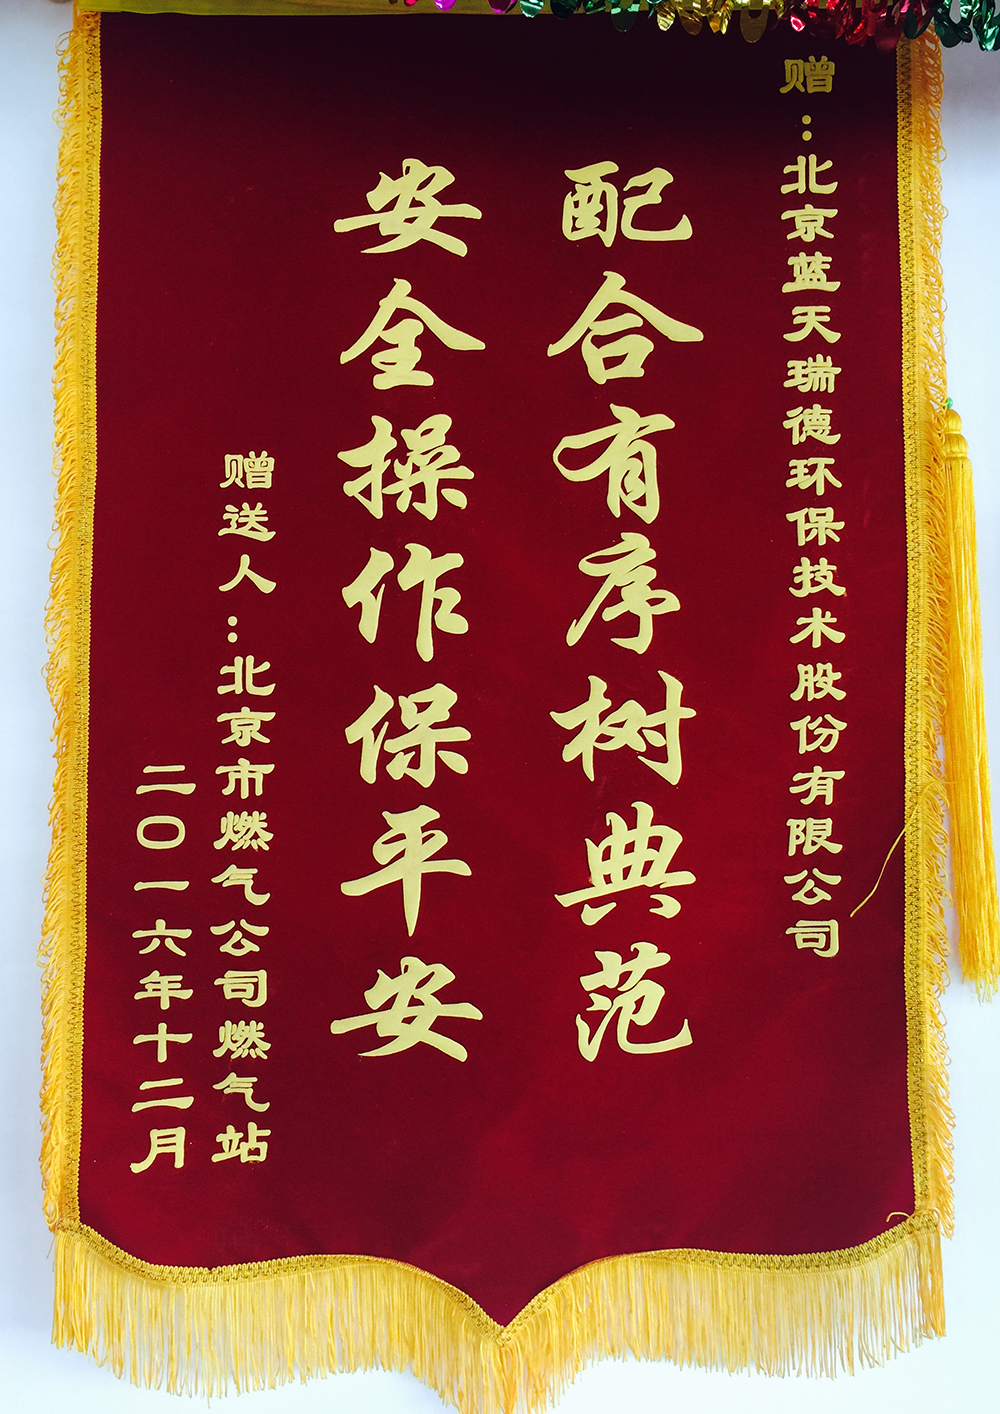 赠：北京蓝天瑞德环保技术股份有限公司
配合有序树典范
安全操作保平安
赠送人：北京市燃气公司燃气站
二〇一六年十二月